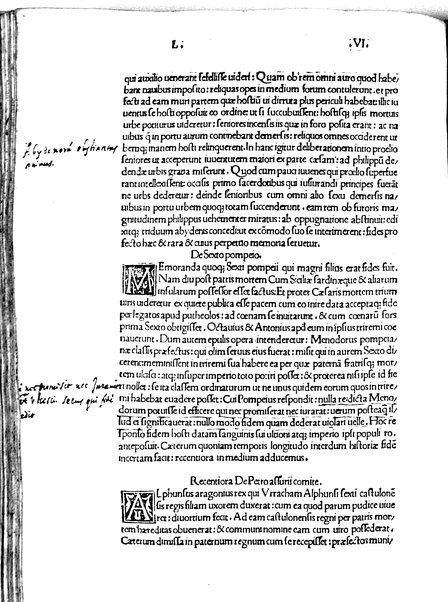 L. .VI.
qui auxilio uenerant fefellisse uideri: Quam ob'rem omni auro quod habe/
bant nauibus imposito: reliquas opes in medium forum contulerunt. et pro
fecti ad eam muri partem quæ hostiū ui dirruta plus periculi habebat: illic iu
uentus se hosti opposuit eo ordine: ut si succubuissent: hostisq; ipsis mortuis
urbe potiturus uideretur: seniores incensis iis quæ in foro posita erant: ac na
uibus q̄ in portu aurum continebant demersis: reliquos omnes occiderent ur
bemq; inanem hosti relinquerent. In hanc igitur deliberationem intro prœlio
seniores ut acceperunt iuuentutem maiori ex parte cæsam: ad philippū de/
dendæ urbis gratia miserunt. Quod cum pauci iuuenes qui prœlio superfue
rant intellexissent: occasis primo sacerdotibus qui iusiurandi principes fuerāt
ne urbs dederetur: deinde senioribus cum omni alio sexu demersis na/
uibus in portu urbem quoq; totam succenderunt. eam rem ob furoris ma/
gnitudinem philippus uehementer miratus: ab oppugnatione abstinuit: edi
xitq; triduum abydenis concedi ut ex cōmodo suo se interimerent: fides pro
fecto hæc & rara & cuius perpetuo memoria seruetur.
De Sexto pompeio.
MEmoranda quoq; Sexti pompeii qui magni filius erat fides fuit.
Nam diu post patris mortem Cum Siciliæ sardiniæque & aliarum
insularum possessor esset factus: Et propter Cæsaris mortem etiam
uiris uideretur ex quiete publica esse pacem cum eo inire data acceptaq; fide
per legatos apud putheolos: ad cœnam se inuitarunt. & cum cœnarū sors
prima Sexto obtigisset. Octauius & Antonius apd eum in ipsius triremi coe
nauerunt. Dum autem epulis opera intenderetur: Menodorus pompeia/
næ classis præfectus: qui olim seruus eius fuerat: misit qui in aurem Sexto di
cerent: meminissent in triremi sua habere ea per quæ patērnā fratrisq; mor/
tem ulcisci: atq; insuper imperio toto potiri posset: & propterea nisi ipse id fie
ri nollet: se ita classem ordinaturum ut ne unus quidem eorum quos in trire/
mi habebat euadere posset: Cui Pompeius respondit: nulla re dicta Meno/
dorum potuisse id efficere qui nec promiserat nec iurarat: uerum posteaq̄ il/
lud ei significauerat: nullo modo fidem quam dederat uiolari uelle. Hoc re
sponso fidem hosti datam sanguinis sui ultioni atq; imperio ipsi populi ro.
anteposuit. Cæterum quoniam temporis longitudo interdum historiæ fidē
incertam facit: recentiora in medium adducemus.
Recentiora De Petro assurii comite.
ALphunsus aragonius rex qui Vrracham Alphunsi sexti castulonē
sis regis filiam uxorem duxerat: cum ea quod parum pudice uiue
ret: diuortium fecit. Ad eam castulonensis regni per patris mor/
tem hæreditas obuenerat: & communi nomine eam cum uiro possederat.
Cæterum dimissa in paternum regnum cum se recepisset: præfectos muni/